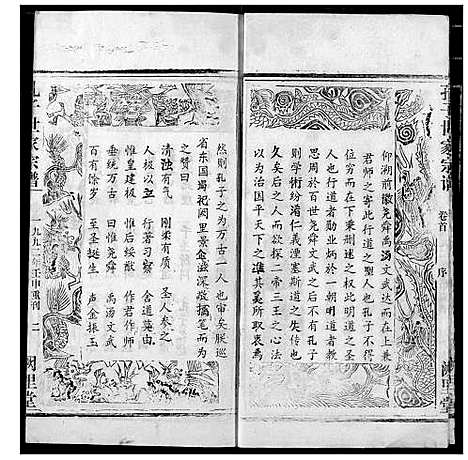 孔子世家宗谱
卷首
序
阙里堂
仰溯前徽尧舜禹汤文武达而在上兼
君师之寄此行道之圣人也孔子不得
位穷而在下秉删述之权此明道之圣
人也行道者勋业炳于一朝明道者教
思周於百世尧舜文武之后不有孔子
则学术纷淆仁义湮塞斯道之失传也
久矣后之人而欲探二帝三王之心法
以为治国平天下之准其奚所取衷焉
然则孔子之为万古一人也审矣朕巡
省东国谒祀阙里景企滋深敬摛笔而为
之赞曰
清浊有气 刚柔有质 圣人参之
人极以立 行著习察 舍道莫由
惟皇建极 惟后绥猷 作君作师
垂统万古 曰惟尧舜 禹汤文武
百有馀岁 至圣挺生 声金振玉
孔子世家宗谱
一九九二年壬申重刊
二
阙里堂